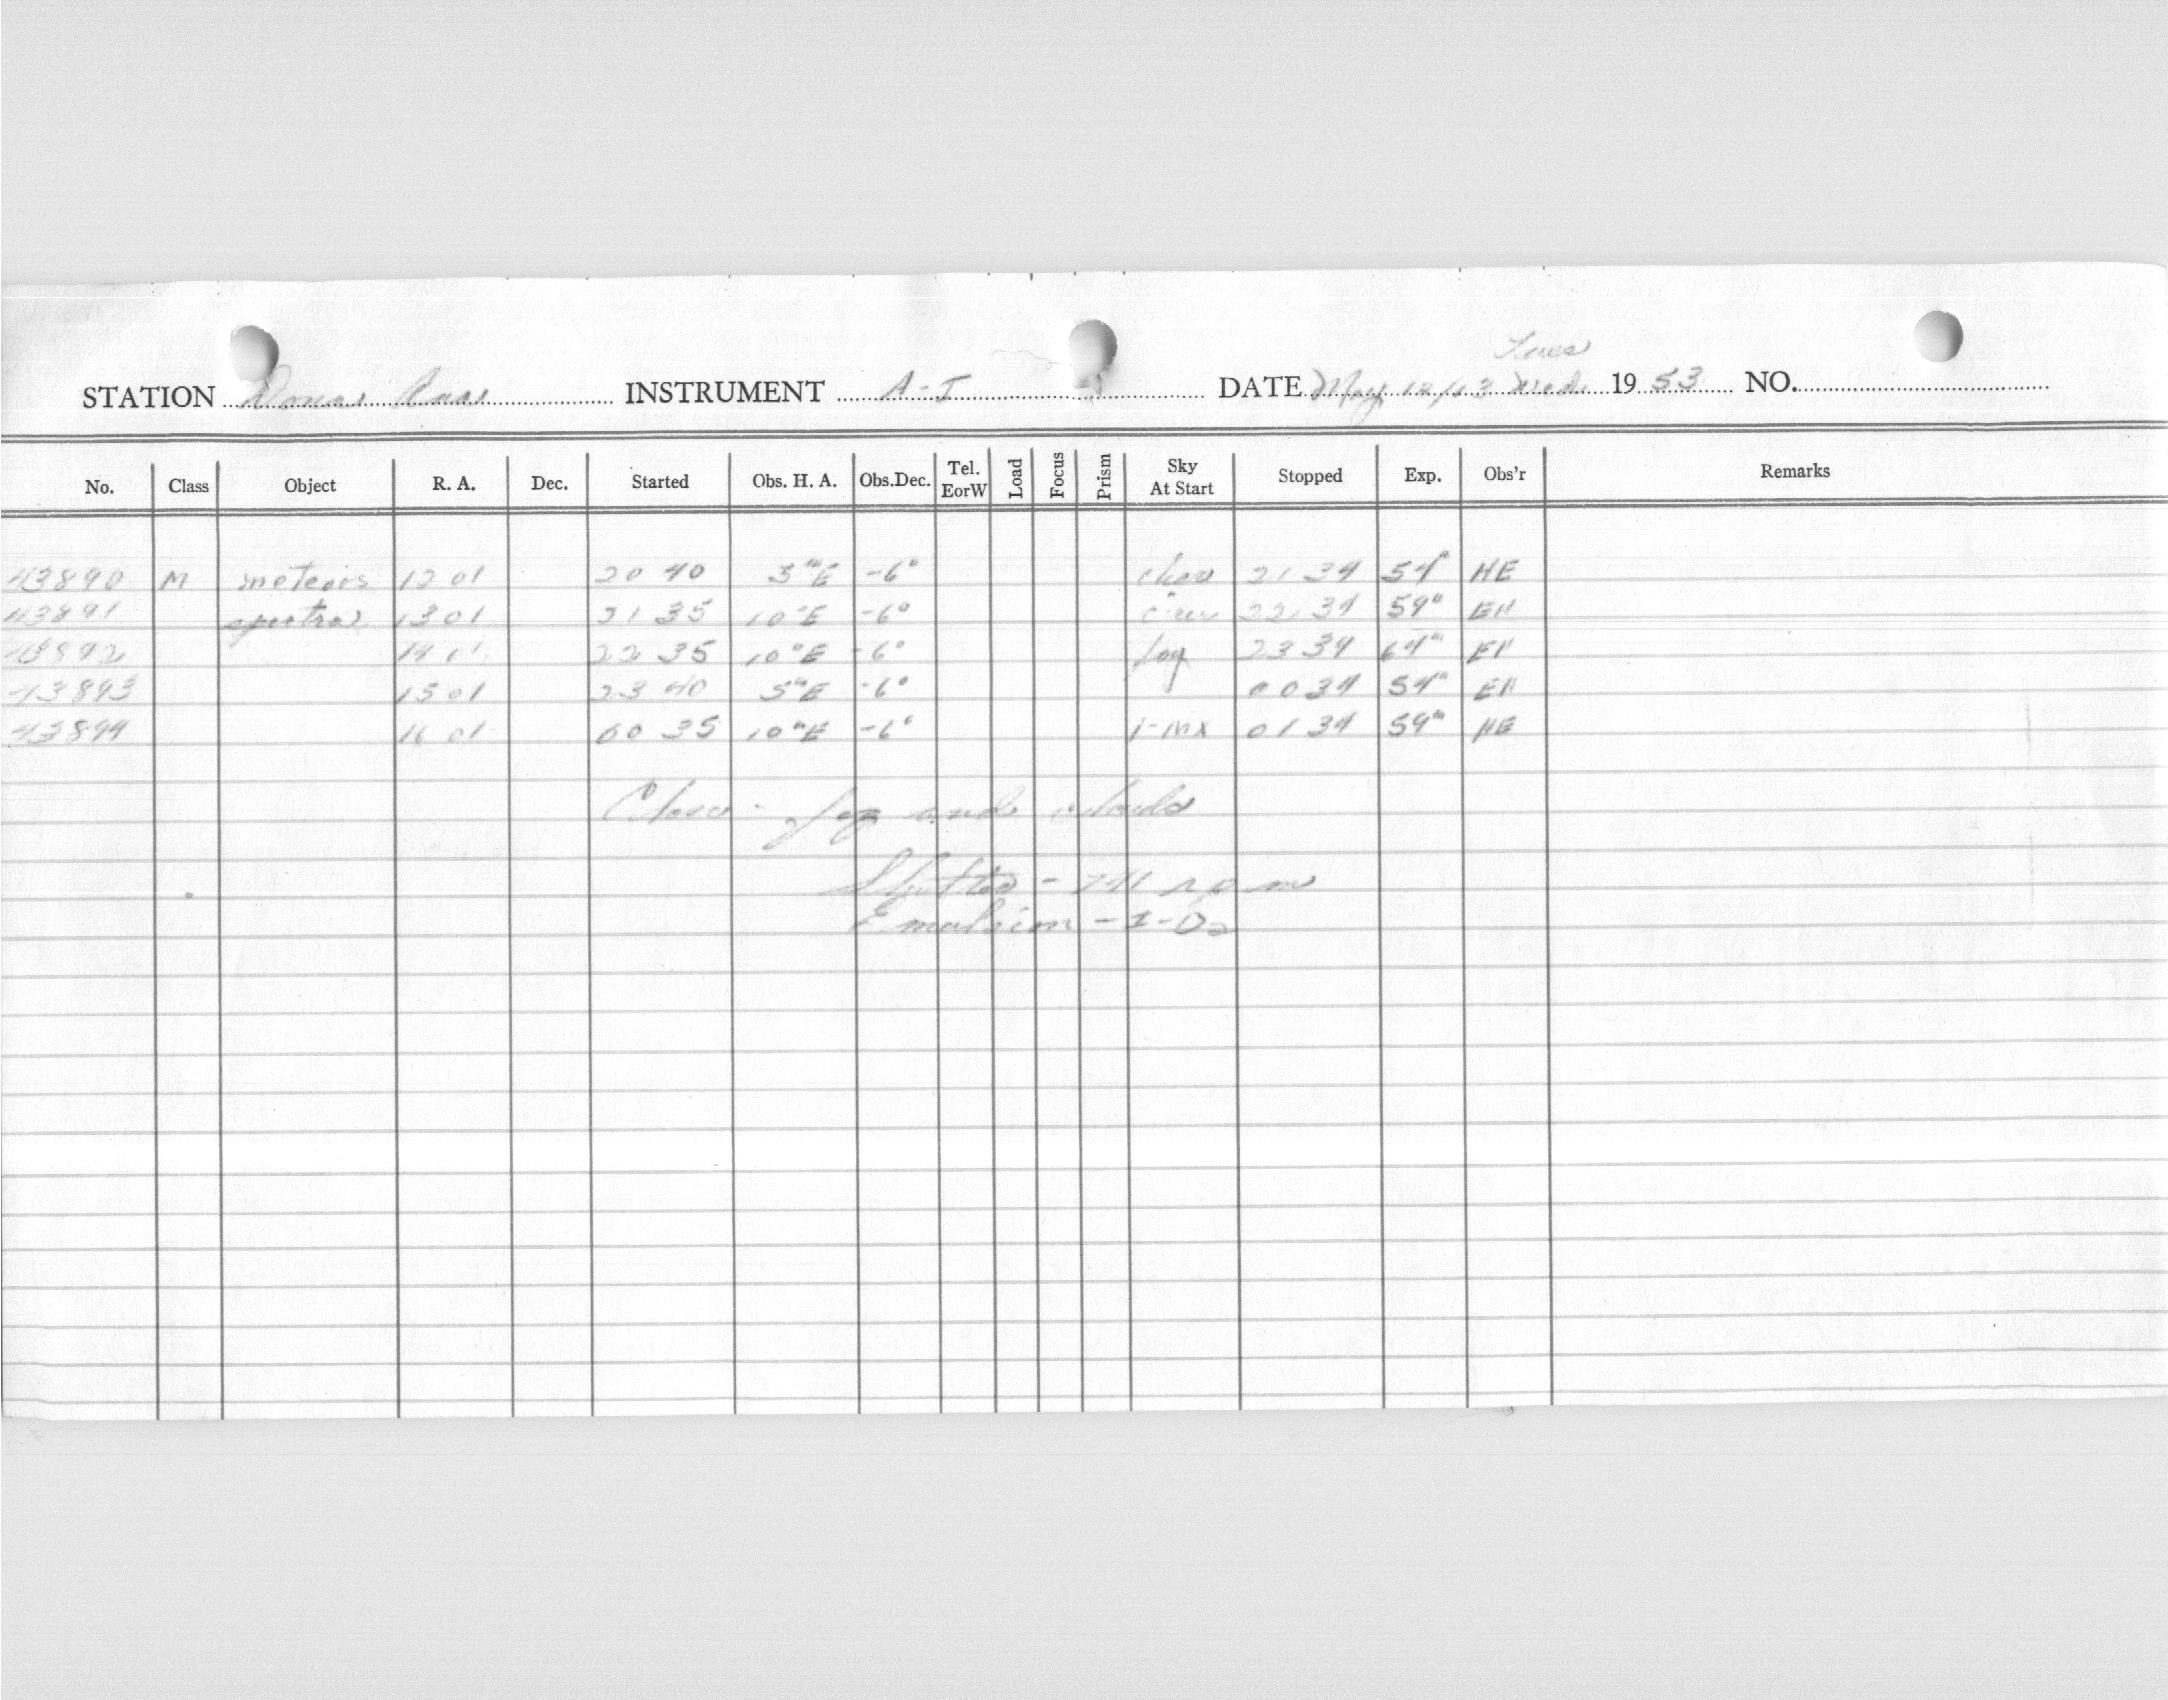 Tues
STATION Dona Ana INSTRUMENT A-I DATE May 12/13 Wed. 1953 NO.
No. Class Object R. A. Dec. Started Obs. H. A. Obs.Dec. Tel. EorW Load Focus Prism Sky At Start Stopped Exp. Obs'r Remarks
43890 M meteors 12 01 20 40 5ᵐE -6° clear 21 34 54ᵐ HE
43891 spectra 13 01 21 35 10ᵐE -6° 22 34 59ᵐ EH
43892 14 01 22 35 10ᵐE -6° fog 23 39 64ᵐ EH
43893 15 01 23 40 5ᵐE -6° 00 34 54ᵐ EH
43894 16 01 00 35 10ᵐE -6° 01 34 59ᵐ HE
Close - fog and clouds
Shutter - rpm
Emulsion - I-O